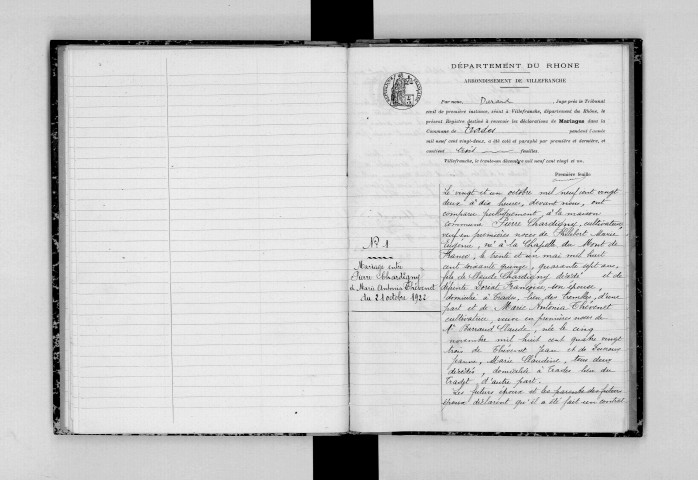 N° 1
Mariage entre
Pierre Chardigny
et Marie Antonia Thévenet
du 21 octobre 1922
DÉPARTEMENT DU RHONE
ARRONDISSEMENT DE VILLEFRANCHE
Par nous, Durand Juge près le Tribunal
civil de première instance, séant à Villefranche, département du Rhône, le
présent Registre destiné à recevoir les déclarations de Mariages dans la
Commune de Trades pendant l'année
mil neuf cent vingt-deux, a été coté et paraphé par première et dernière, et
contient trois feuilles.
Villefranche, le trente-un décembre mil neuf cent vingt et un.
Première feuille
Le vingt et un octobre mil neuf cent vingt
deux à dix heures, devant nous, ont
comparu publiquement, à la maison
commune Pierre Chardigny, cultivateur,
veuf en premières noces de Philibert Marie
Eugénie, né à la Chapelle du Mont de
France, le trente et un mai mil huit
cent soixante quinze, quarante sept ans,
fils de Claude Chardigny décédé et de
défunte Françoise, son épouse,
domicilié à Trades, lieu des Trembles, d'une
part et de Marie Antonia Thévenet
cultivatrice, veuve en premières noces de
Claude, née le cinq
novembre mil huit cent quatre vingt
trois de Thévenet Jean et de
Jeanne, Marie Claudine, tous deux
décédés, domiciliée à Trades lieu du
d'autre part.
Les futurs époux et les parents des futurs
époux déclarent qu'il a été fait un contrat